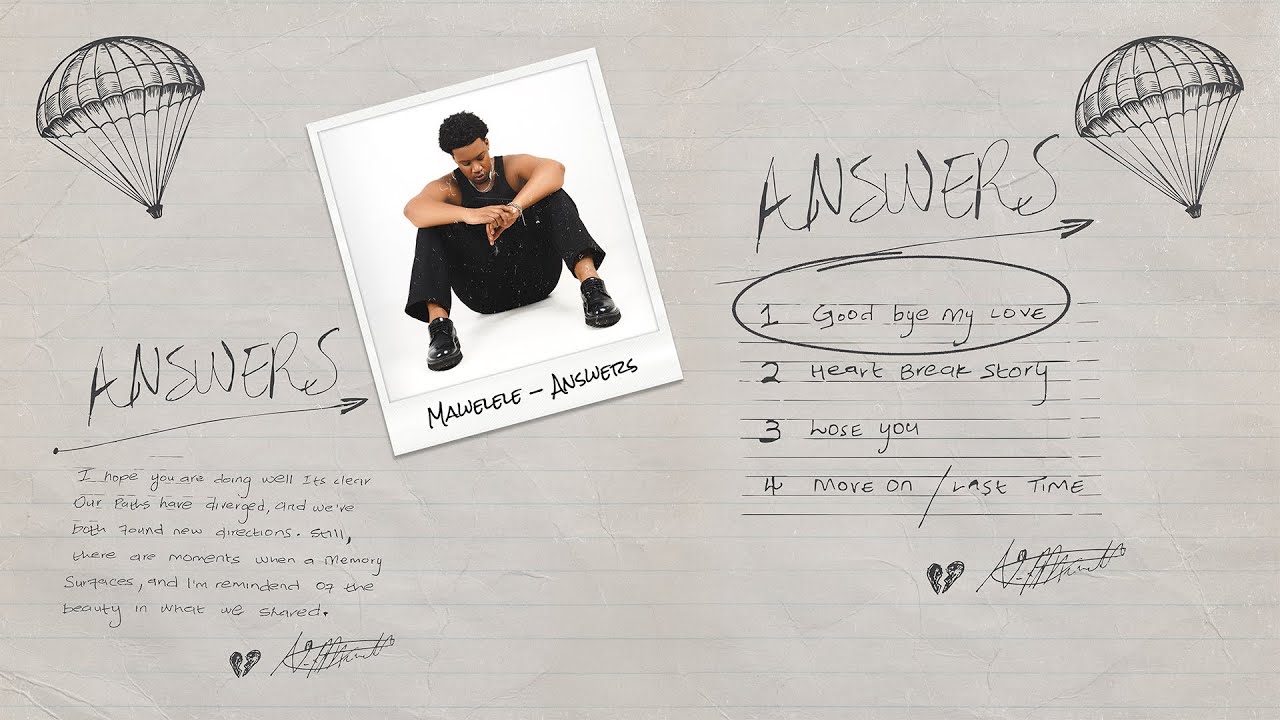 ANSWERS
I hope you are doing well Its clear
Our Paths have diverged, and we've
both found new directions. Still,
there are moments when a Memory
Surfaces, and I'm remindend of the
beauty in what we shared.
MAWELELE – ANSWERS
ANSWERS
1 Good bye My LOVE
2 Heart Break Story
3 LOSE YOU
4 MOVE ON / LAST TIME